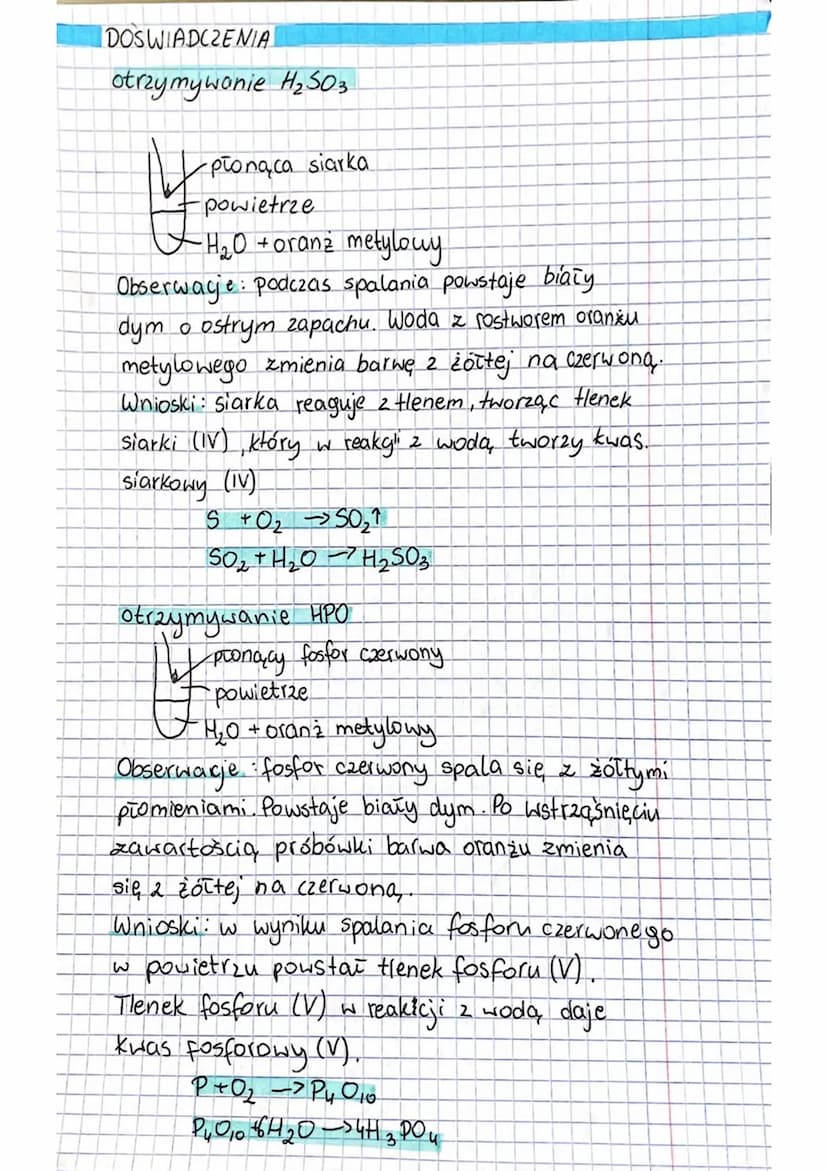 DOŚWIADCZENIA
otrzymywanie H₂SO₃
płonąca siarka
powietrze
H₂O + oranż metylowy
Obserwacje: podczas spalania powstaje biały
dym o ostrym zapachu. Woda z rostworem oranżu
metylowego zmienia barwę z żółtej na czerwoną.
Wnioski: siarka reaguje z tlenem, tworząc tlenek
siarki (IV), który w reakcji z wodą tworzy kwas.
siarkowy (IV)
S + O₂ → SO₂↑
SO₂ + H₂O → H₂SO₃
otrzymywanie HPO
płonący fosfor czerwony
powietrze
H₂O + oranż metylowy
Obserwacje: fosfor czerwony spala się z żółtymi
płomieniami. Powstaje biały dym. Po wstrząśnięciu
zawartością próbówki barwa oranżu zmienia
się z żółtej na czerwoną.
Wnioski: w wyniku spalania fosforu czerwonego
w powietrzu powstał tlenek fosforu (V).
Tlenek fosforu (V) w reakcji z wodą daje
kwas fosforowy (V).
P + O₂ → P₄O₁₀
P₄O₁₀ + 6H₂O → 4H₃PO₄